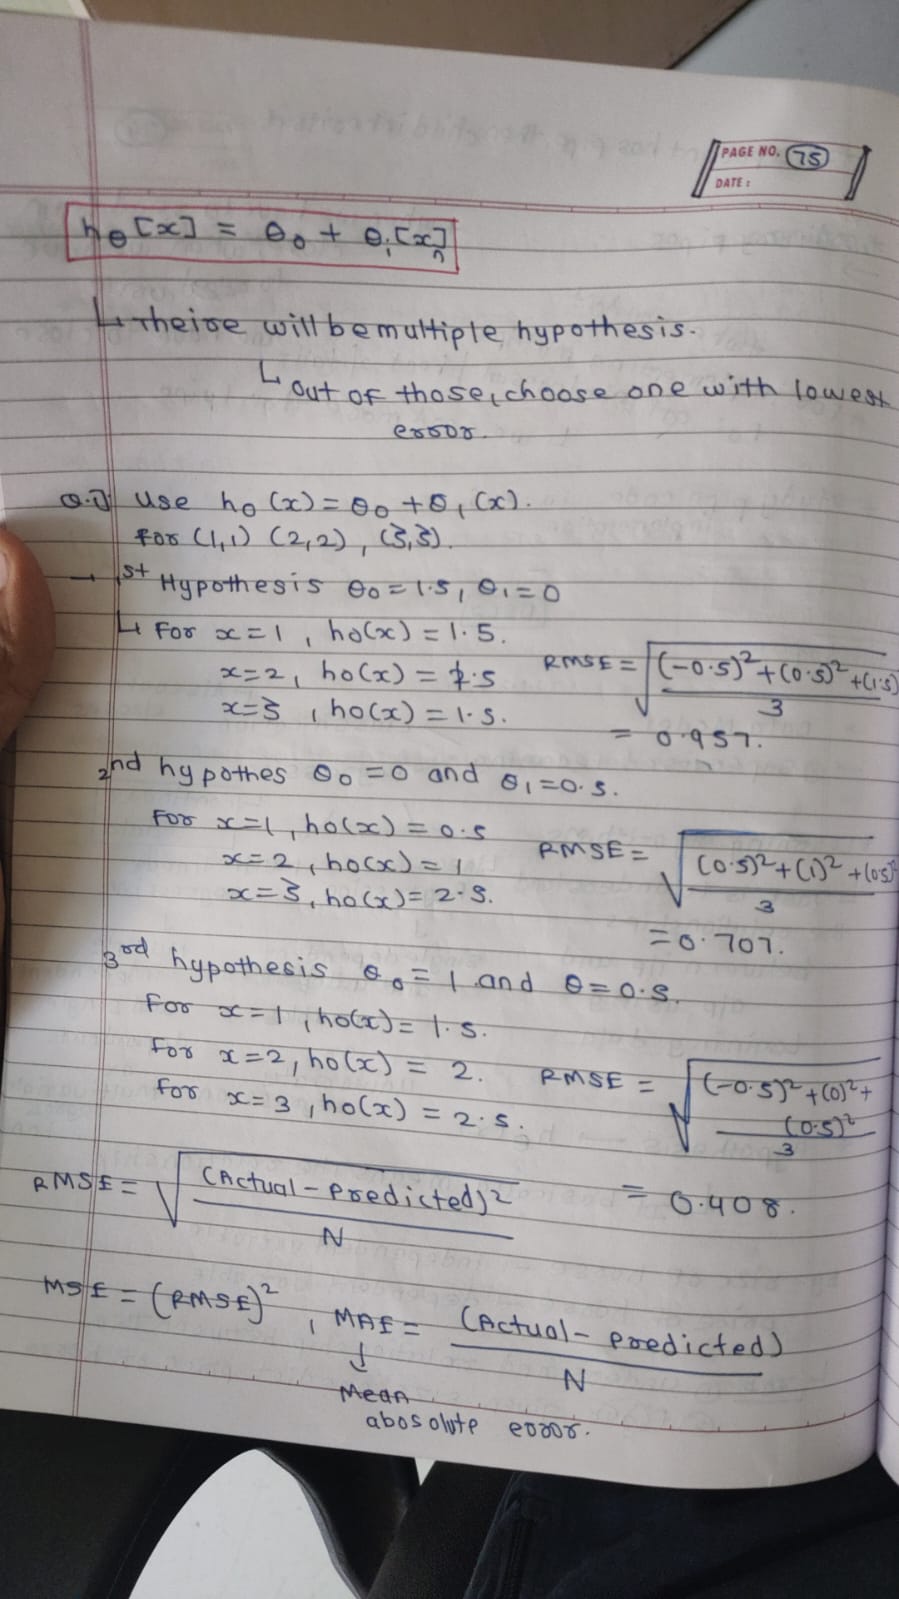 PAGE NO. 75
DATE :
hθ[x] = θ0 + θ1[x]n
↳ Theire will be multiple hypothesis.
↳ out of those, choose one with lowest
error.
Q.1) Use h0(x) = θ0 + θ1(x).
For (1,1) (2,2), (3,3).
→ 1st Hypothesis θ0 = 1.5, θ1 = 0
↳ For x=1, h0(x) = 1.5.
x=2, h0(x) = 1.5
x=3, h0(x) = 1.5.
RMSE = √((-0.5)²+(0.5)²+(1.5) / 3)
= 0.957.
2nd hypothes θ0 = 0 and θ1 = 0.5.
For x=1, h0(x) = 0.5
x=2, h0(x) = 1
x=3, h0(x) = 2.5.
RMSE = √((0.5)²+(1)²+(0.5)² / 3)
= 0.707.
3rd hypothesis θ0 = 1 and θ = 0.5.
For x=1, h0(x) = 1.5.
For x=2, h0(x) = 2.
For x=3, h0(x) = 2.5.
RMSE = √((-0.5)²+(0)²+(0.5)² / 3)
= 0.408.
RMSE = √((Actual - Predicted)² / N)
MSE = (RMSE)², MAE = (Actual - Predicted) / N
↓
Mean
abosolute error.